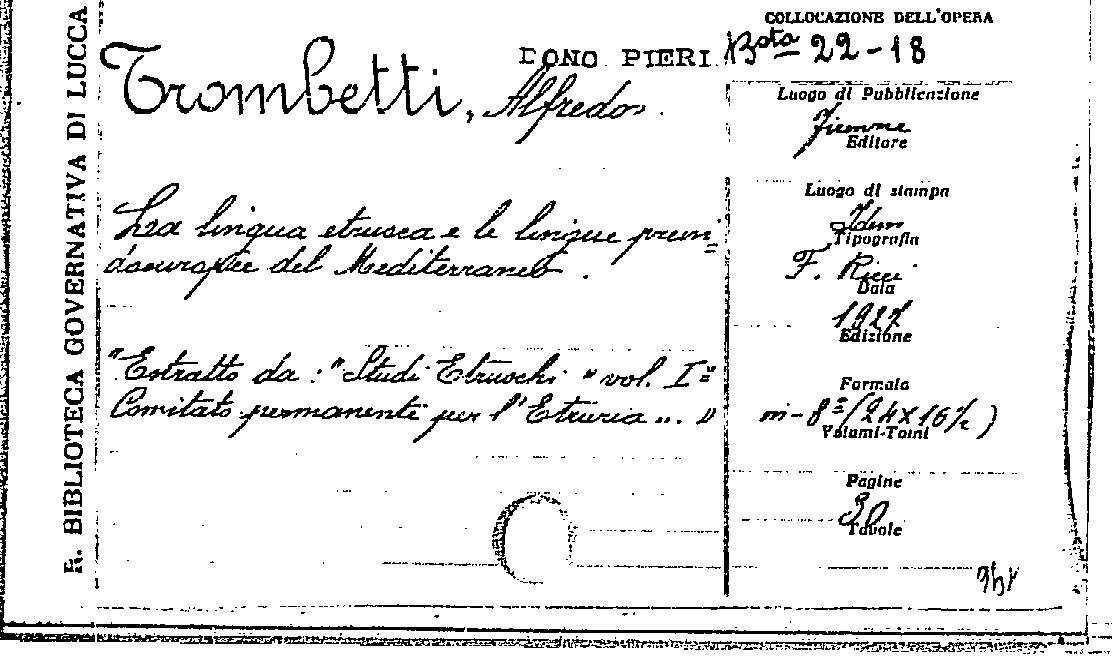 R. BIBLIOTECA GOVERNATIVA DI LUCCA
COLLOCAZIONE DELL'OPERA
DONO PIERI Bsta 22-18
Trombetti, Alfredo.
La lingua etrusca e le lingue prein=
doeuropee del Mediterraneo.
"Estratto da: "Studi Etruschi" vol. I="
Comitato permanente per l'Etruria ... "
Luogo di Pubblicazione
Firenze
Editore
Luogo di stampa
Idem
Tipografia
F. Ricci
Data
1927
Edizione
Formato
in-8º (24x16½)
Volumi-Tomi
Pagine
30
Tavole